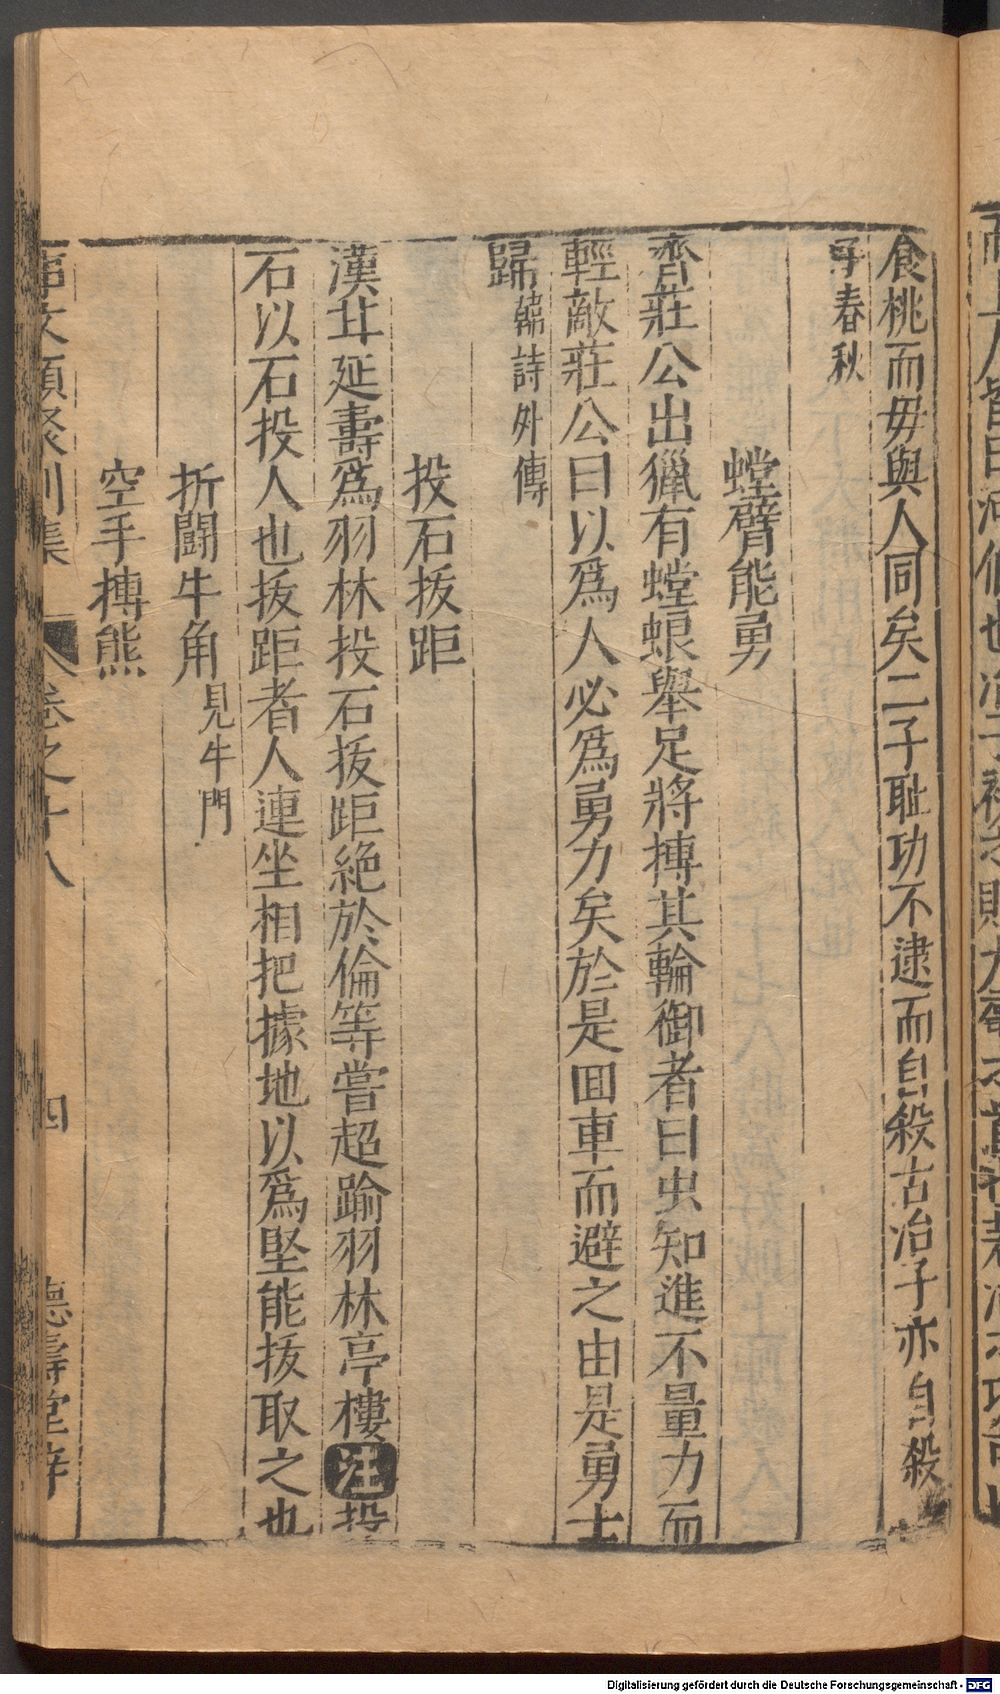 食桃而毋與人同矣二子耻功不逮而自殺古冶子亦自殺
子春秋
螳臂能勇
齊莊公出獵有螳蜋舉足將搏其輪御者曰虫知進不量力而
輕敵莊公曰以爲人必爲勇力矣於是囬車而避之由是勇士
歸韓詩外傳
投石拔距
漢甘延壽爲羽林投石拔距絶於倫等嘗超踰羽林亭樓注投
石以石投人也拔距者人連坐相把據地以爲堅能拔取之也
折鬪牛角見牛門
空手搏熊
事文類聚別集 卷之十八 四 德壽堂梓
Digitalisierung gefördert durch die Deutsche Forschungsgemeinschaft - DFG